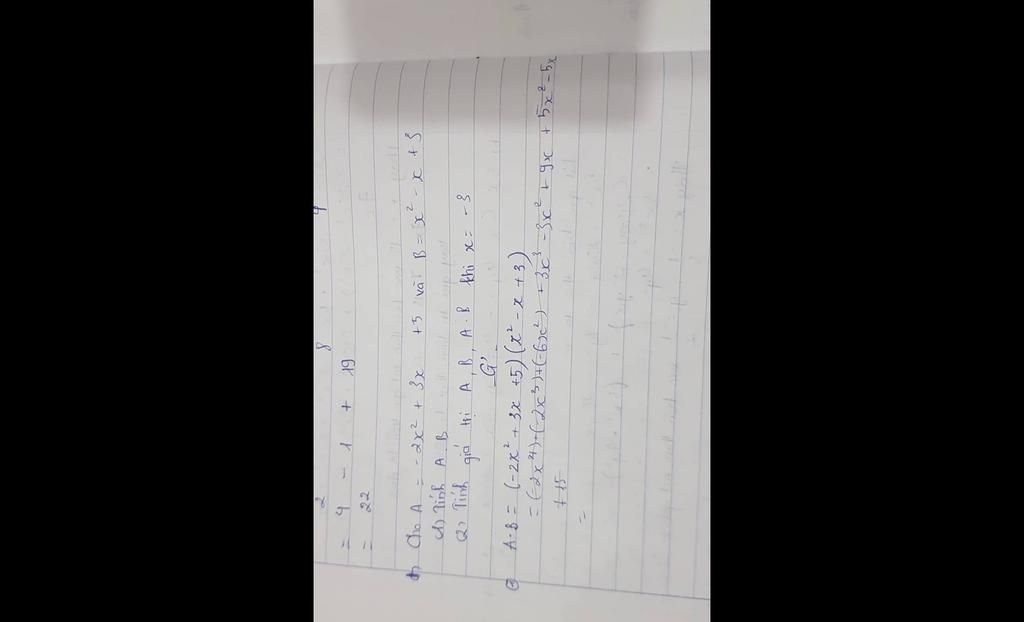 2 8 4
= 4 - 1 + 19
= 22
Cho A = -2x² + 3x +5 và B = x² - x + 3
(1) Tính A.B
(2) Tính giá trị A, B, A.B khi x = -3
-G'-
A.B = (-2x² + 3x +5)(x² - x + 3)
= (-2x⁴)+(-2x³)+(-6x²) + 3x³ - 3x² + 9x + 5x² - 5x
+ 15
=